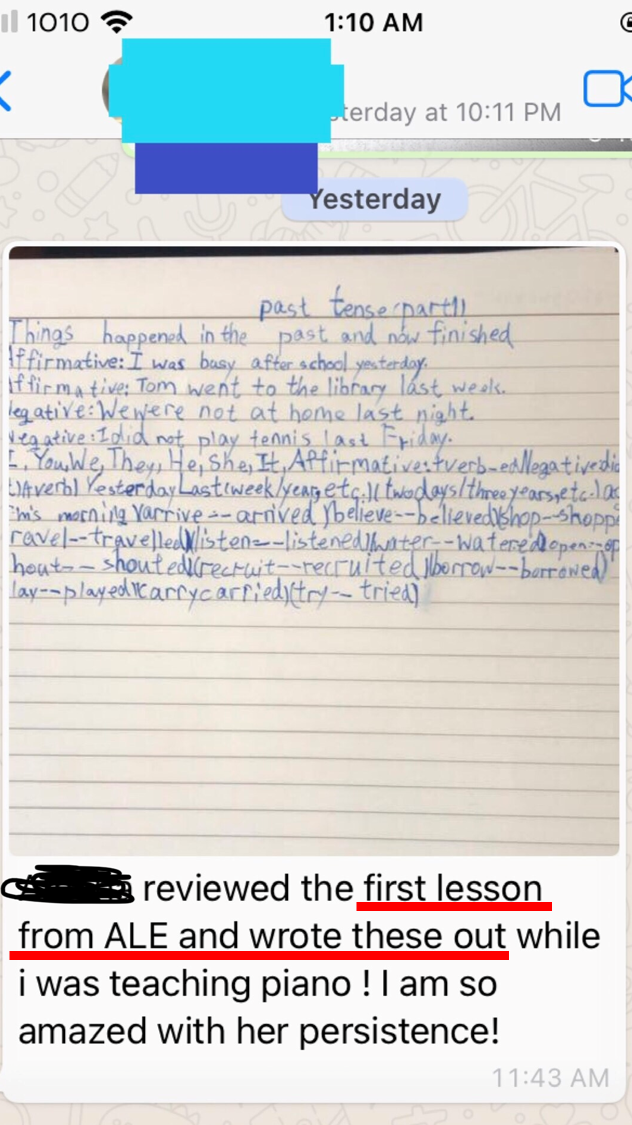 1O1O
1:10 AM
terday at 10:11 PM
Yesterday
past tense (part1)
Things happened in the past and now finished
ffirmative: I was busy after school yesterday.
ffirmative: Tom went to the library last week.
egative: We were not at home last night.
egative: I did not play tennis last Friday.
I, You, We, They, He, She, It, Affirmative: +verb-ed Negative: did
t)(Averb) Yesterday Last (week/year, etc.)( two days/three years, etc.) ag
morning (arrive -- arrived )(believe--believed)(shop--shoppe
ravel--travelled)(listen--listened)(water--watered)(open--op
hout-- shouted)(recruit--recruited )(borrow--borrowed)
lay--played)(carry carried)(try-- tried)
reviewed the first lesson
from ALE and wrote these out while
i was teaching piano ! I am so
amazed with her persistence!
11:43 AM